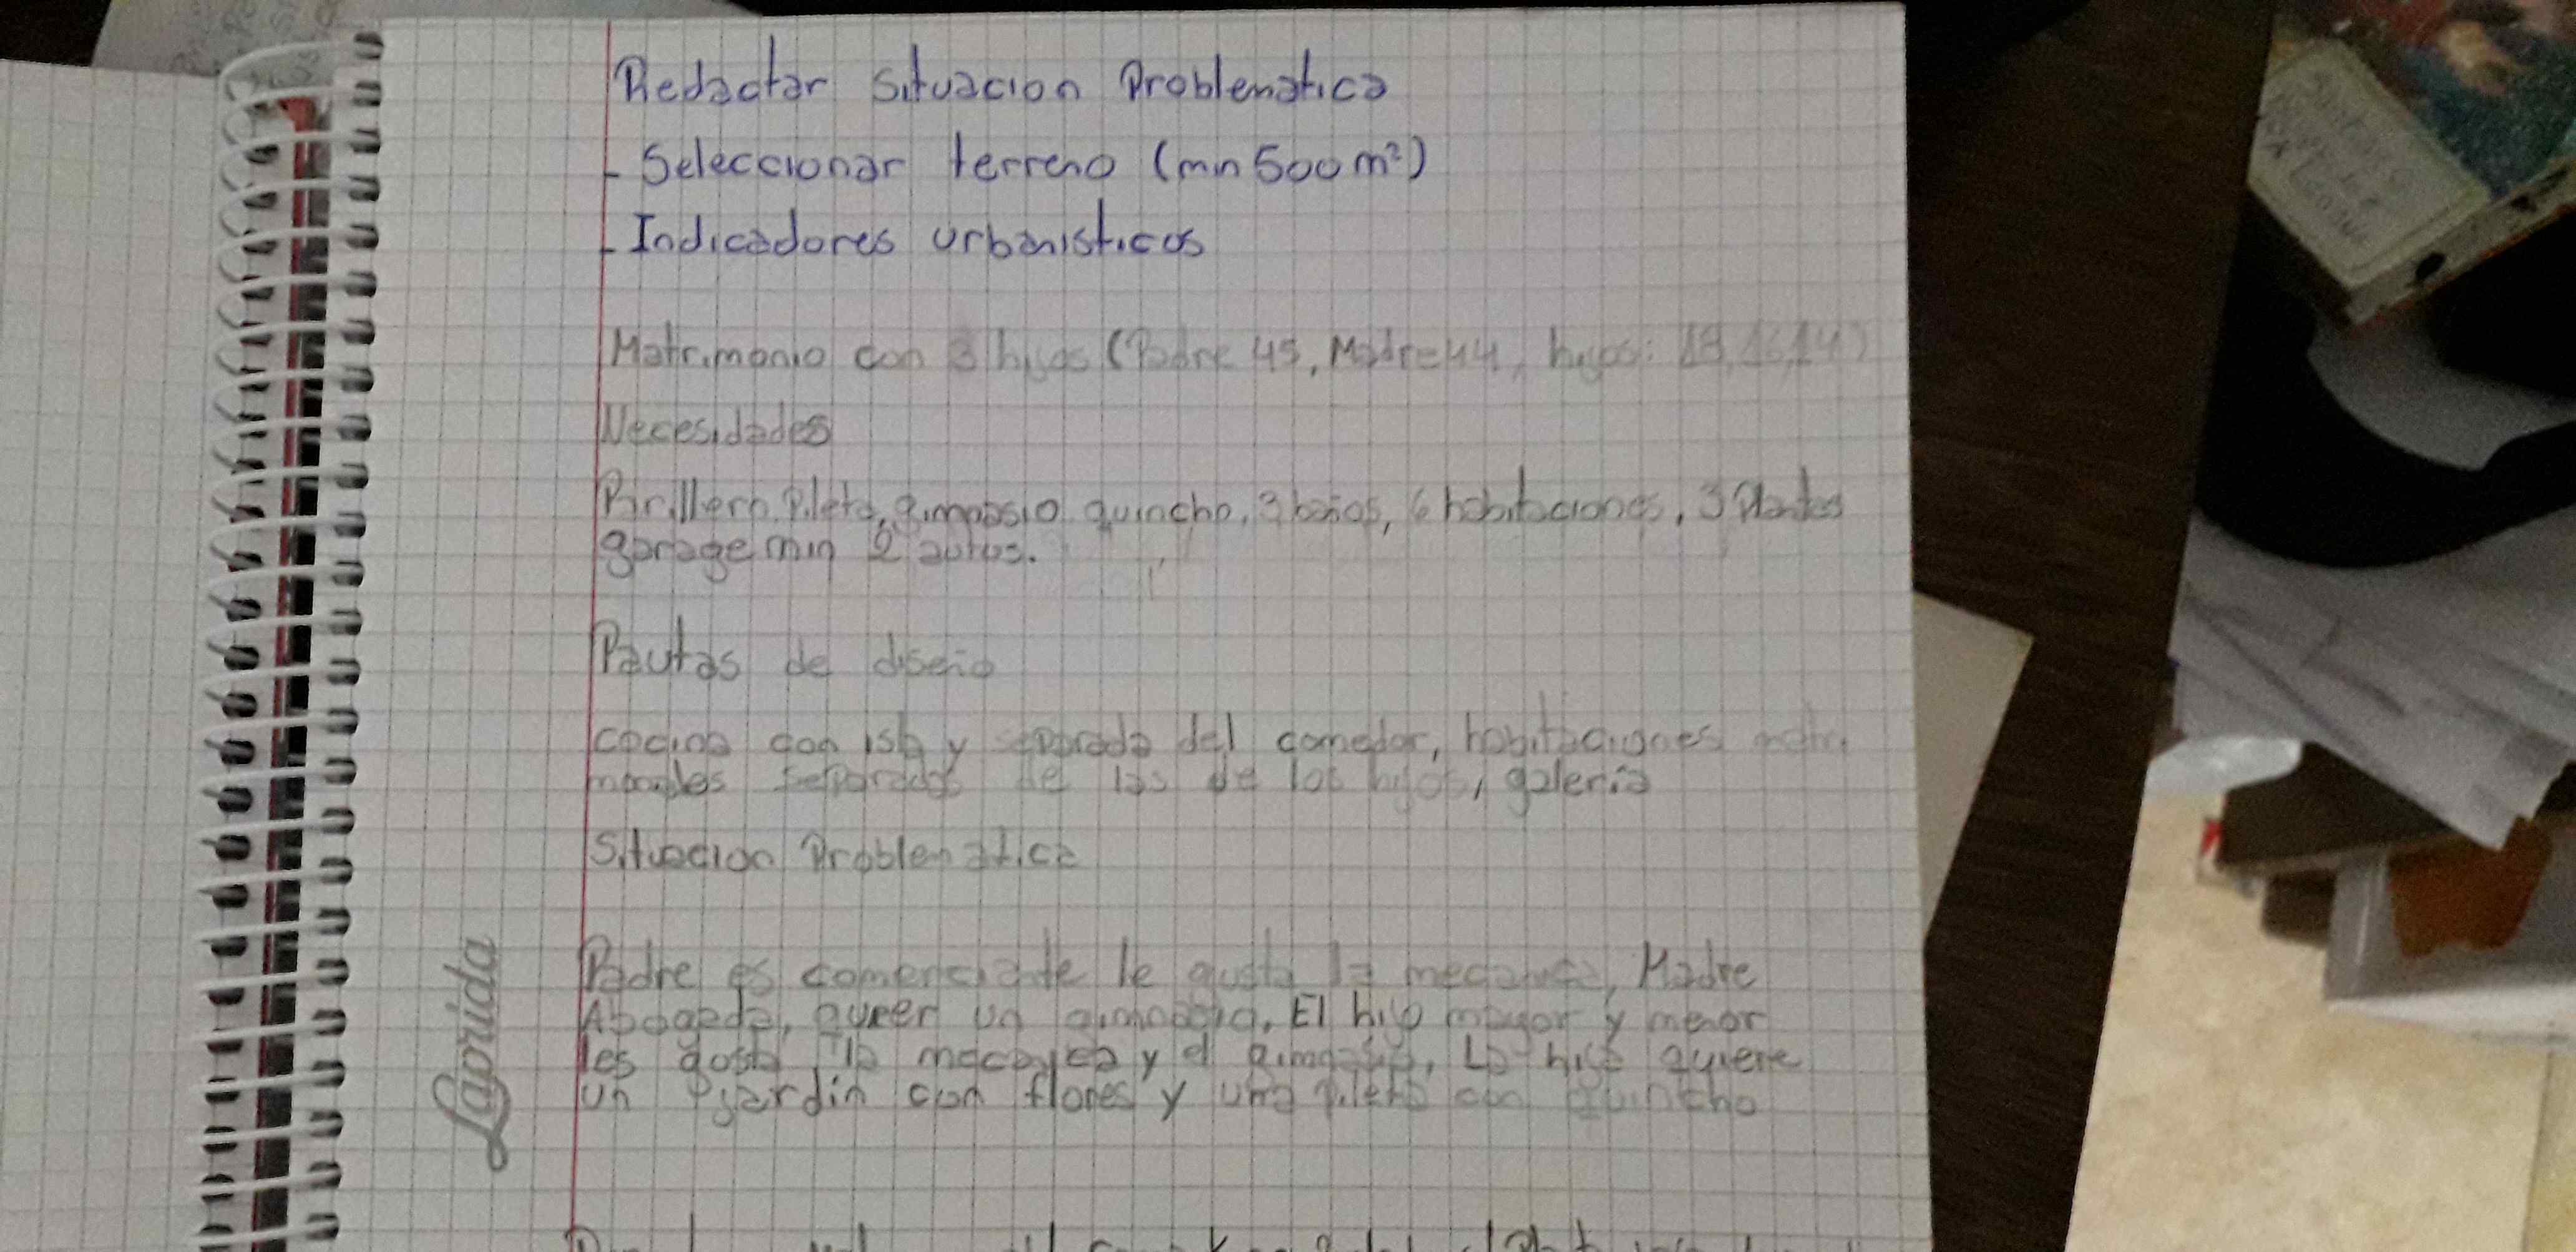 Redactar situacion Problematica
- Seleccionar terreno (min 500 m²)
- Indicadores urbanisticos
Matrimonio con 3 hijos (Padre 45, Madre 44, hijos: 18, 16, 14)
Necesidades
Parillero, Pileta, gimnasio quincho, 3 baños, 6 habitaciones, 3 Plantas
garage min 2 autos.
Pautas de diseño
cocina con isla y separada del comedor, habitaciones matri
moniales separadas de las de los hijos, galeria
Situacion Problematica
Padre es comerciante le gusta la mecanica, Madre
Abogada, queer un gimnasio. El hijo mayor y menor
les gosta la mecanica y el gimnasio, La hija quiere
un jardin con flores y una pileta con quincho
Laprida